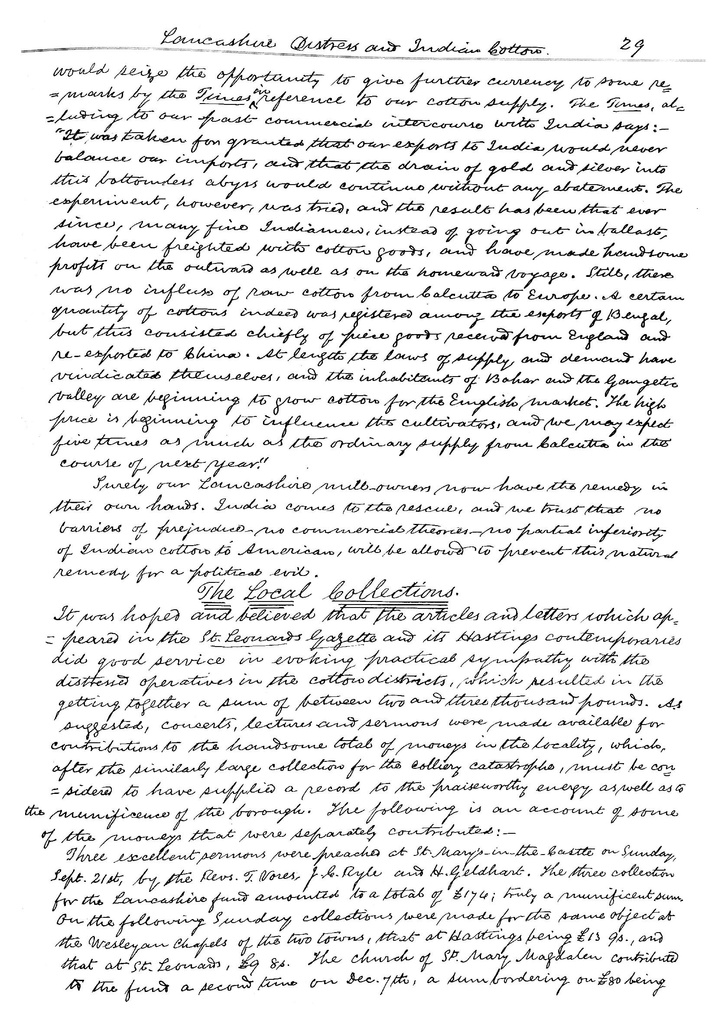 Lancashire Distress and Indian Cotton. 29
would seize the opportunity to give further currency to some re=
=marks by the Times in reference to our cotton supply. The Times, al=
=luding to our past commercial intercourse with India says:-
"It was taken for granted that our exports to India would never
balance our imports, and that the drain of gold and silver into
this bottomless abyss would continue without any abatement. The
experiment, however, was tried, and the result has been that ever
since, many fine Indiamen, instead of going out in ballast,
have been freighted with cotton goods, and have made handsome
profits on the outward as well as on the homeward voyage. Still, there
was no influx of raw cotton from Calcutta to Europe. A certain
quantity of cottons indeed was registered among the exports of Bengal,
but this consisted chiefly of piece goods received from England and
re-exported to China. At length, the laws of supply and demand have
vindicated themselves, and the inhabitants of Bahar and the Gangetic
valley are beginning to grow cotton for the English market. The high
price is beginning to influence the cultivators, and we may expect
five times as much as the ordinary supply from Calcutta in the
course of next year."
Surely our Lancashire mill-owners now have the remedy in
their own hands. India comes to the rescue, and we trust that no
barriers of prejudice-no commercial theories-no partial inferiority
of Indian cotton to American, will be allowed to prevent this natural
remedy for a political evil.
The Local Collections.
It was hoped and believed that the articles and letters which ap=
=peared in the St. Leonards Gazette and its Hastings contemporaries
did good service in evoking practical sympathy with the
distressed operatives in the cotton districts, which resulted in the
getting together a sum of between two and three thousand pounds. As
suggested, concerts, lectures and sermons were made available for
contributions to the handsome total of moneys in the locality, which,
after the similarly large collection for the colliery catastrophe, must be con
=sidered to have supplied a record to the praiseworthy energy as well as to
the munificence of the borough. The following is an account of some
of the moneys that were separately contributed:-
Three excellent sermons were preached at St. Mary's-in-the-Castle on Sunday,
Sept. 21st, by the Revs. T. Vores, J. C. Ryle and H. Geldhart. The three collection
for the Lancashire fund amounted to a total of £174; truly a munificent sum.
On the following Sunday collections were made for the same object at
the Wesleyan Chapels of the two towns, that at Hastings being £13 9s., and
that at St. Leonards, £9 8s. The church of St. Mary Magdalen contributed
to the fund a second time on Dec. 7th, a sum bordering on £80 being